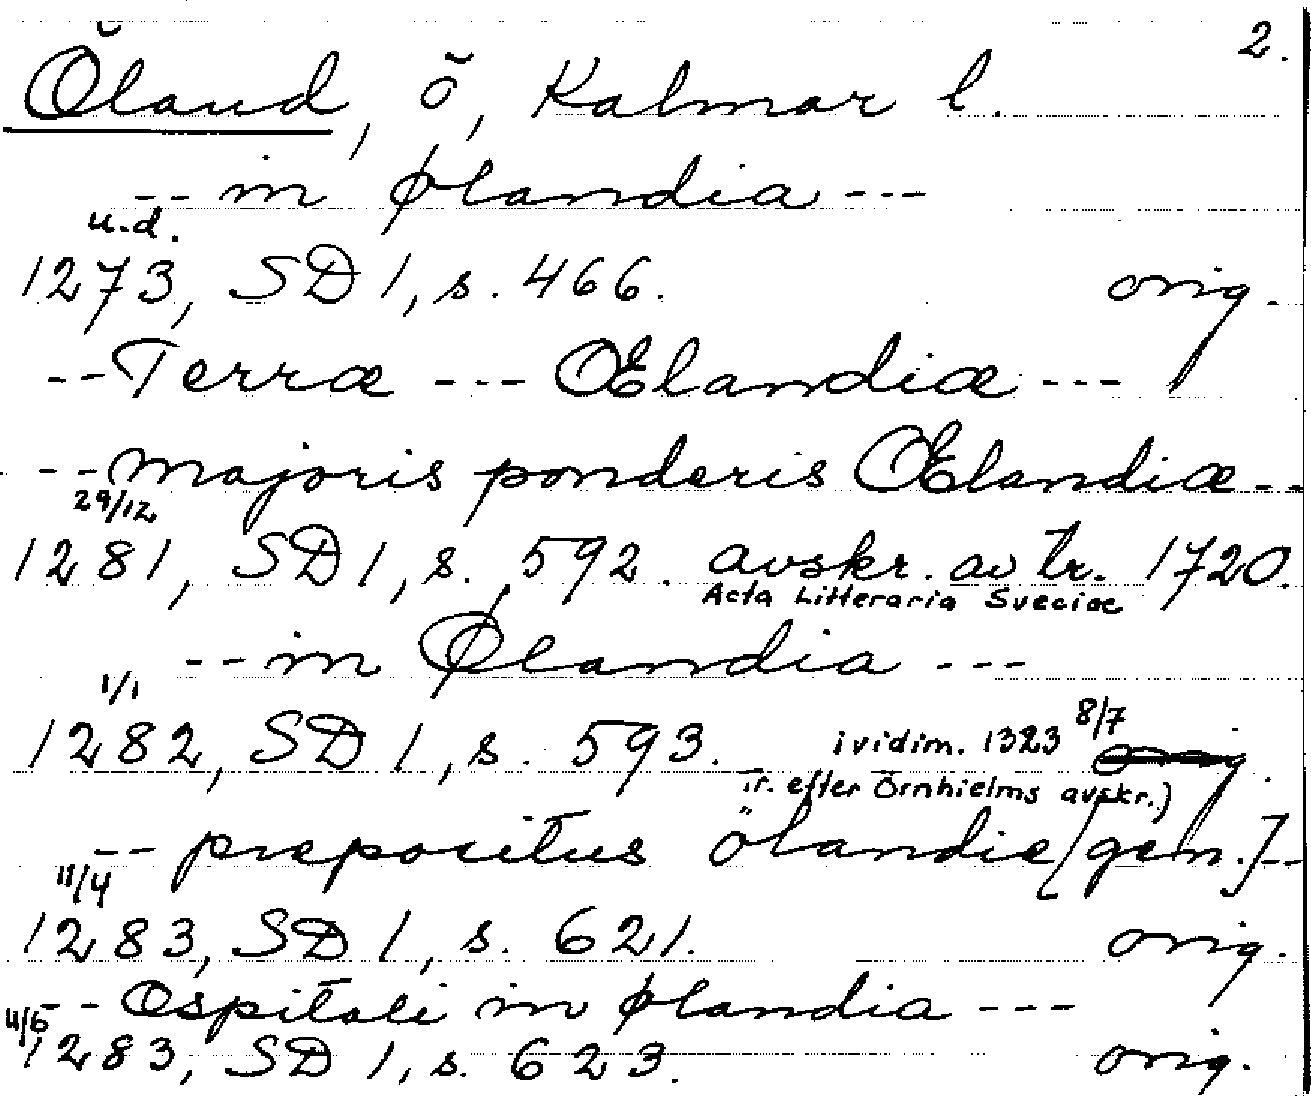 2.
Öland, ö, Kalmar l.
-- in ølandia ---
u.d.
1273, SD 1, s. 466. orig.
-- Terræ --- Œlandiæ ---
-- majoris ponderis Œlandiæ --
29/12
1281, SD 1, s. 592. avskr. av tr. 1720.
Acta Litteraria Sveciae
-- in Ølandia ---
1/1
1282, SD 1, s. 593. i vidim. 1323 8/7 orig.
tr. efter Örnhielms avskr.)
-- prepositus ölandie [gen.] --
11/4
1283, SD 1, s. 621. orig.
-- Ospitali in ølandia ---
11/5
1283, SD 1, s. 623. orig.